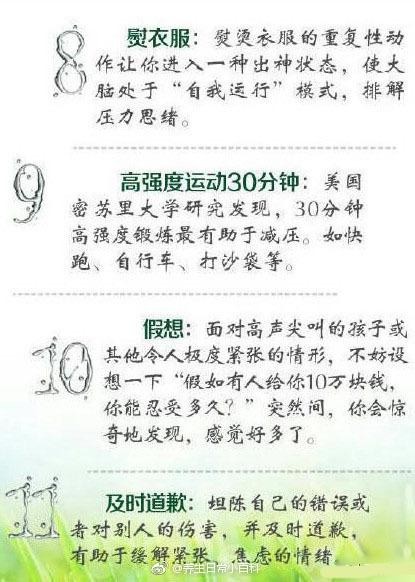 8 熨衣服：熨烫衣服的重复性动
作让你进入一种出神状态，使大
脑处于“自我运行”模式，排解
压力思绪。
9 高强度运动30分钟：美国
密苏里大学研究发现，30分钟
高强度锻炼最有助于减压。如快
跑、自行车、打沙袋等。
10 假想：面对高声尖叫的孩子或
其他令人极度紧张的情形，不妨设
想一下“假如有人给你10万块钱，
你能忍受多久？”突然间，你会惊
奇地发现，感觉好多了。
11 及时道歉：坦陈自己的错误或
者对别人的伤害，并及时道歉，
有助于缓解紧张、焦虑的情绪。
@养生日常小百科